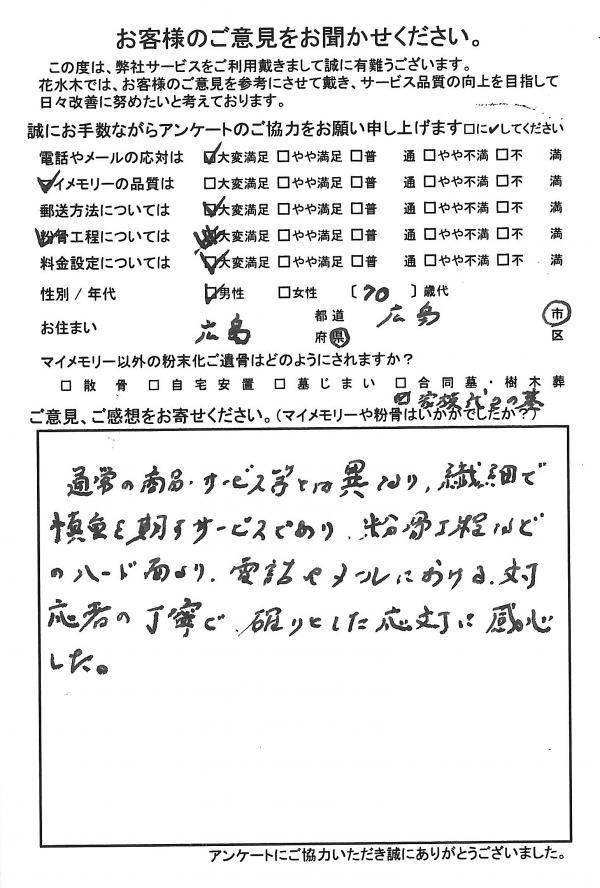 お客様のご意見をお聞かせください。
この度は、弊社サービスをご利用戴きまして誠に有難うございます。
花水木では、お客様のご意見を参考にさせて戴き、サービス品質の向上を目指して
日々改善に努めたいと考えております。
誠にお手数ながらアンケートのご協力をお願い申し上げます□に✓してください
電話やメールの応対は ☑大変満足 □やや満足 □普 通 □やや不満 □不 満
マイメモリーの品質は □大変満足 □やや満足 □普 通 □やや不満 □不 満
郵送方法については ☑大変満足 □やや満足 □普 通 □やや不満 □不 満
粉骨工程については ☑大変満足 □やや満足 □普 通 □やや不満 □不 満
料金設定については ☑大変満足 □やや満足 □普 通 □やや不満 □不 満
性別 / 年代 ☑男性 □女性 〔 70 〕歳代
お住まい 広島 都道府県 広島 市区
マイメモリー以外の粉末化ご遺骨はどのようにされますか？
□ 散骨 □ 自宅安置 □ 墓じまい □ 合同墓・樹木葬
☑ 家族代々の墓
ご意見、ご感想をお寄せください。(マイメモリーや粉骨はいかがでしたか？)
通常の商品・サービス等とは異なり、繊細で
慎重を期すサービスであり、粉骨工程など
のハード面より、電話やメールにおける、対
応者の丁寧で、確りとした応対に感心
した。
アンケートにご協力いただき誠にありがとうございました。